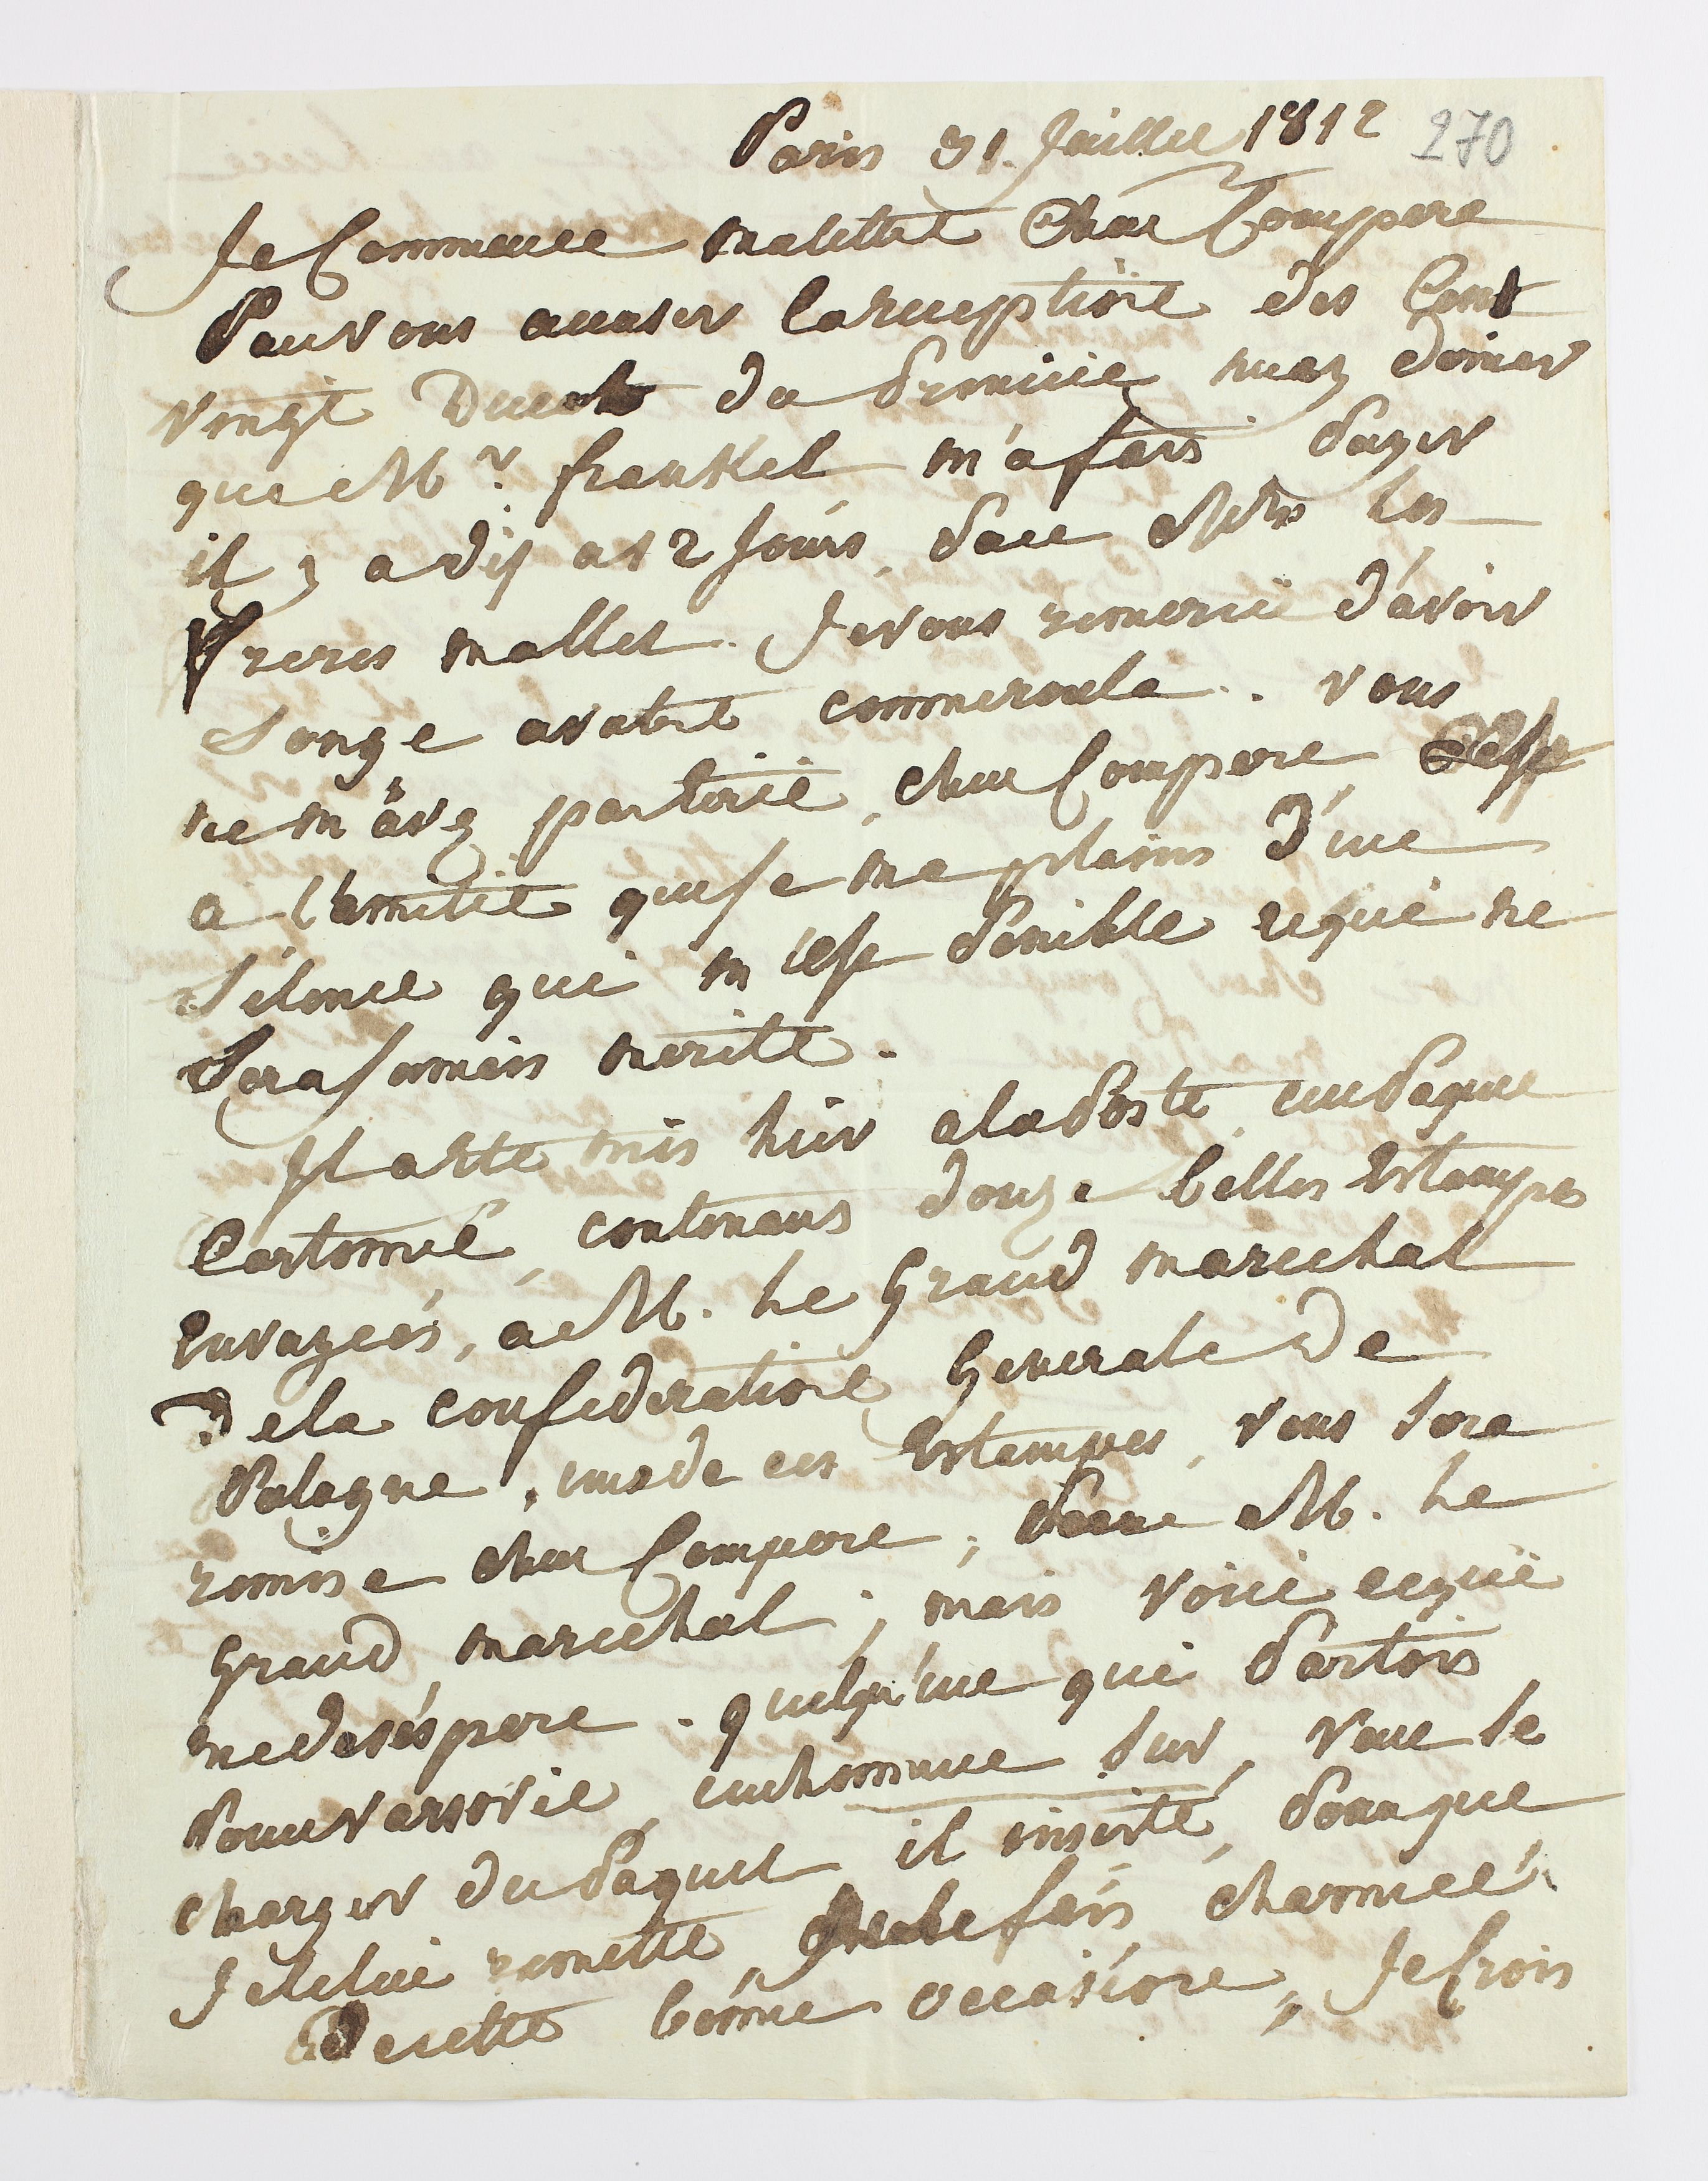 Paris 31. Juillet 1812 270
Je Commence malettre Cher Compere
Pour vous accuser lareception des Cent
vingt Ducat du Premier
que Mr. frenkel m'a fais Payer
il y a dix a 12 Jours, Par Mrs les
freres mallet. Je vous remercie d'avoir
Songe a votre commere. vous
ne m'avez pas ecrie, cher Compere, c'est
a l'amitie que Je me plains d'une
Silence qui m'est Penible et qui ne
Sera Jamais merité.
Il a ete mis hier alaPoste, un Paquet
Cartonné, contenans douze belles Estampes
Envoyées, a M. le Grand marechal
dela confederation Generale de
Pologne, une de ces Estampes, vous sera
remise cher Compere, Par M. le
Grand marechal; mais voici cequi
medesespere. quelqu'un qui Partois
Pour varsovie, unhomme sur, veut se
charger du Paquet il insiste, Pour que
Je le lui remette, Je le fais, charmée
de cette bonne occasion, Je Crois